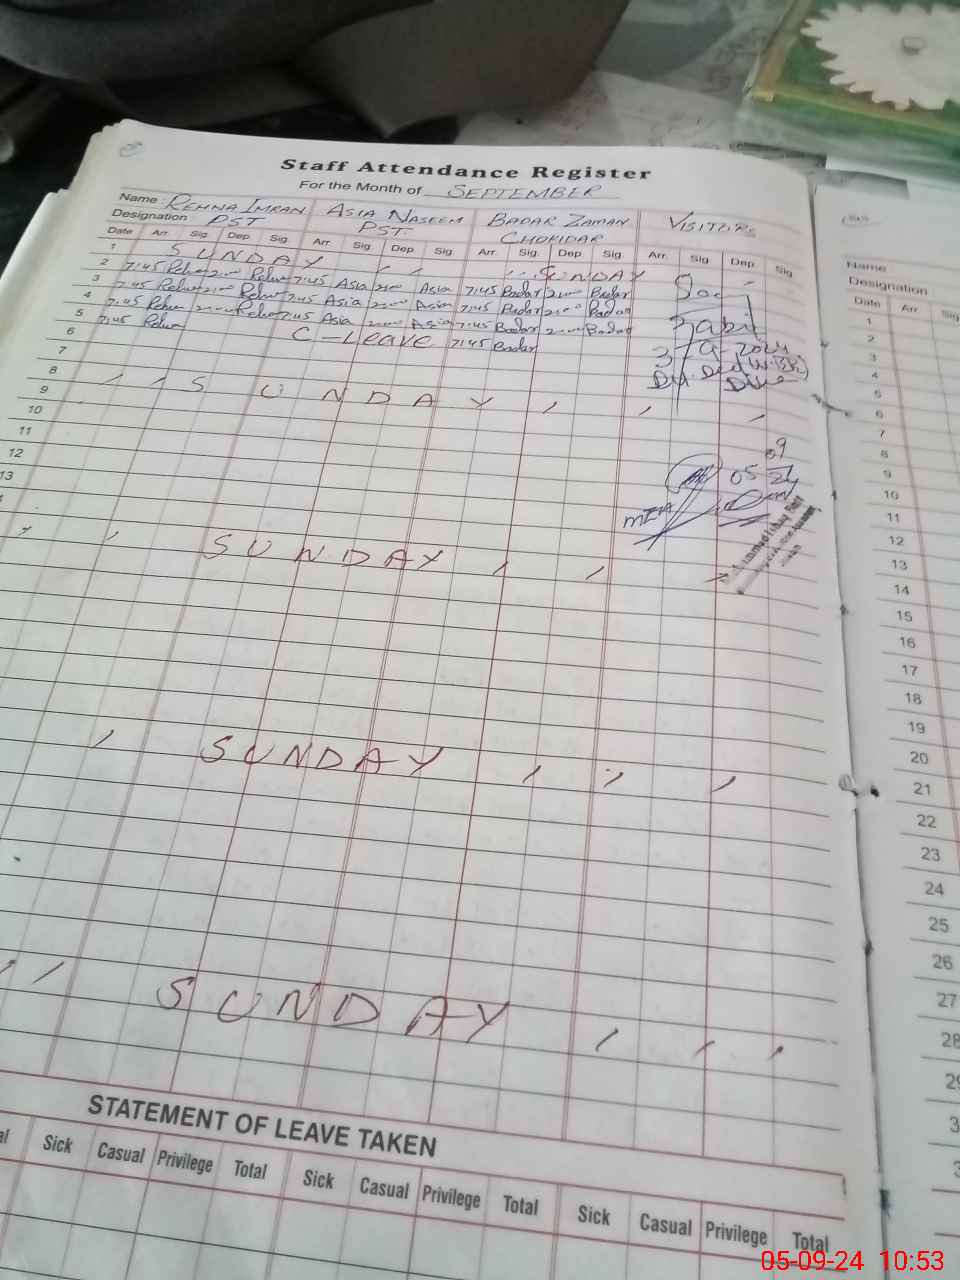 Staff Attendance Register
For the Month of SEPTEMBER
Name REHNA IMRAN ASIA NASEEM BADAR ZAMAN VISITORS
Designation PST PST CHOKIDAR
Date Arr. Sig. Dep. Sig. Arr. Sig. Dep. Sig. Arr. Sig. Dep. Sig. Arr. Sig. Dep. Sig.
1 SUNDAY SUNDAY
2 7:45 Rehna 2:00 Rehna 7:45 Asia 2:00 Asia 7:45 Badar 2:00 Badar
3 7:45 Rehna 2:00 Rehna 7:45 Asia 2:00 Asia 7:45 Badar 2:00 Badar
4 7:45 Rehna 2:00 Rehna 7:45 Asia 2:00 Asia 7:45 Badar 2:00 Badar
5 7:45 Rehna C-Leave 7:45 Badar
6
7
8 SUNDAY
9
10
11
12
13
Zabit
3-9-2024
MEA 05 09 24
SUNDAY
SUNDAY
SUNDAY
STATEMENT OF LEAVE TAKEN
Sick Casual Privilege Total Sick Casual Privilege Total Sick Casual Privilege Total
Name
Designation
Date Arr. Sig
1
2
3
4
5
6
7
8
9
10
11
12
13
14
15
16
17
18
19
20
21
22
23
24
25
26
27
28
05-09-24 10:53